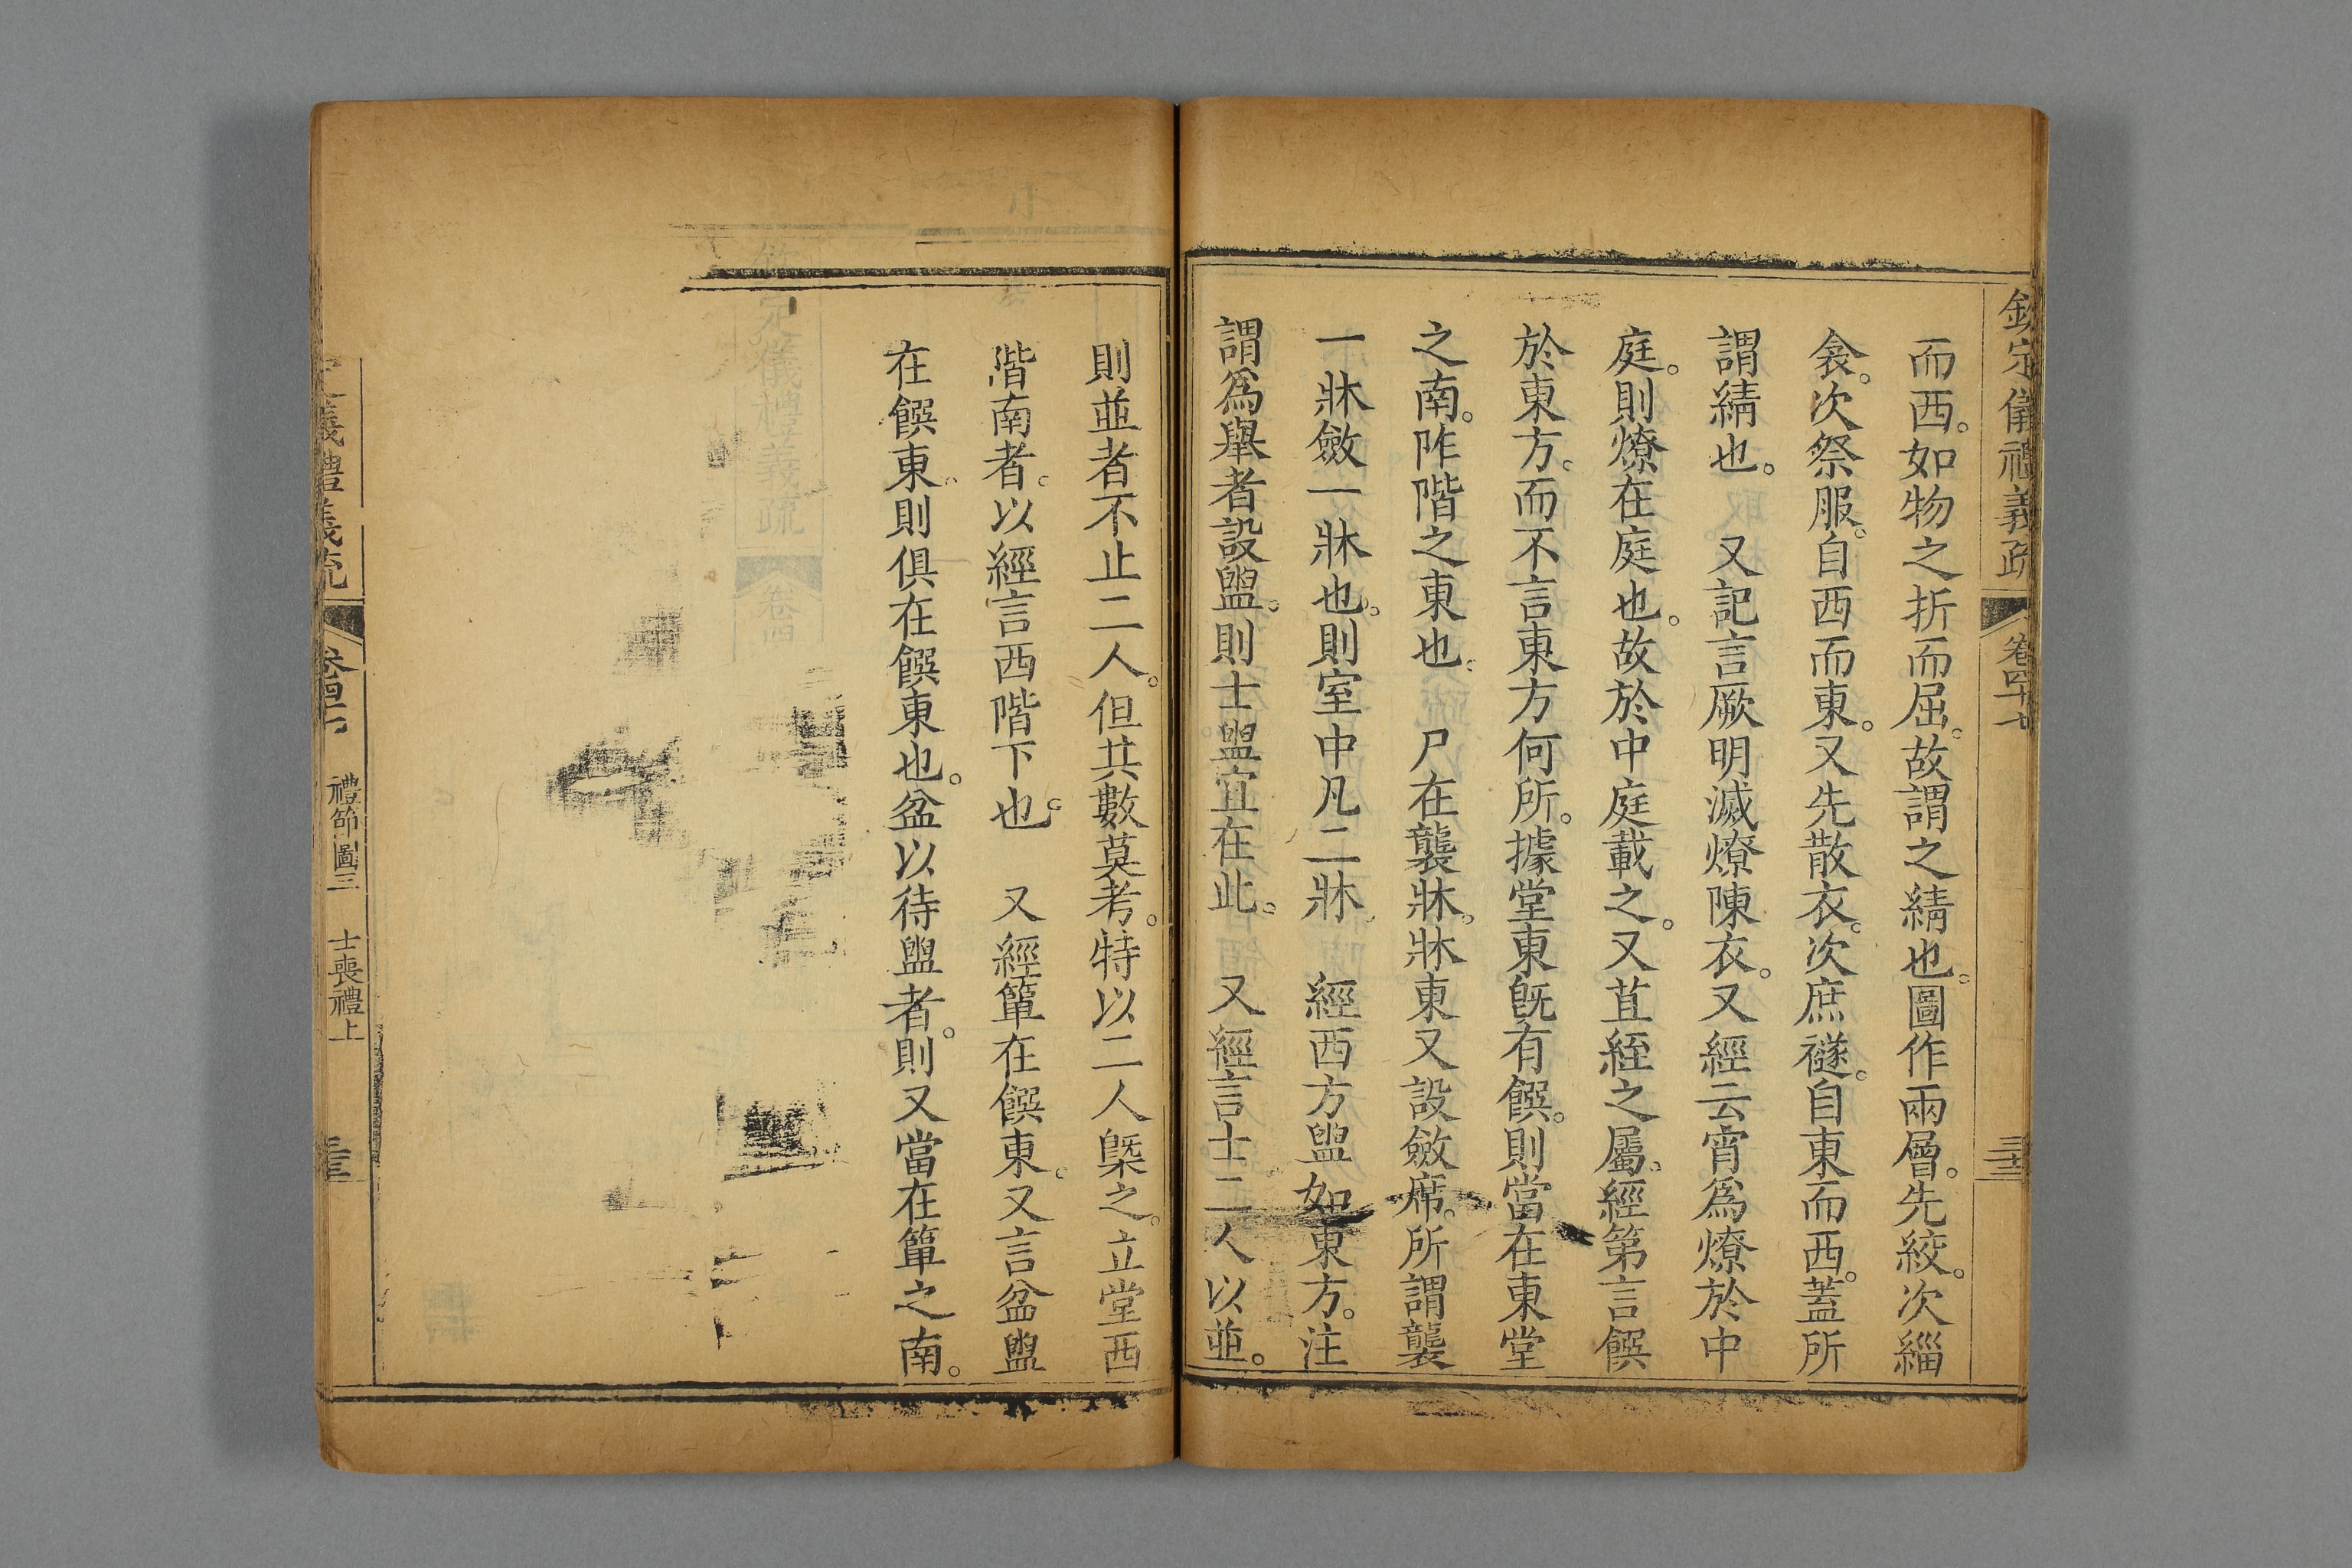 欽定儀禮義疏 卷四十七 三十三
而西。如物之折而屈。故謂之綪也。圖作兩層。先絞。次緇
衾。次祭服。自西而東。又先散衣。次庶襚。自東而西。蓋所
謂綪也。 又記言厥明滅燎陳衣。又經云宵爲燎於中
庭。則燎在庭也。故於中庭載之。又苴絰之屬。經第言饌
於東方。而不言東方何所。據堂東旣有饌。則當在東堂
之南。阼階之東也。 尸在襲牀。牀東又設斂席。所謂襲
一牀斂一牀也。則室中凡二牀 經西方盥如東方。注
謂爲舉者設盥。則士盥宜在此。 又經言士二人以並。
則並者不止二人。但其數莫考。特以二人槩之。立堂西
階南者。以經言西階下也。 又經簞在饌東。又言盆盥
在饌東。則俱在饌東也。盆以待盥者。則又當在簞之南。
儀禮義疏 禮節圖三 士喪禮上